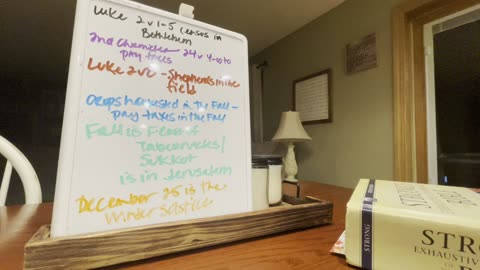 Luke 2 v 1-5 census in
Bethlehem
2nd Chronicles 24 v 4-10 to
pay taxes
Luke 2v8 - Shepherds in the
field
crops harvested in the Fall -
pay taxes in the Fall
Fall is Feast of
Tabernacles/
Sukkot
is in Jerusalem
December 25 is the
winter solstice
STRONG
STRO
EXHAUSTIV